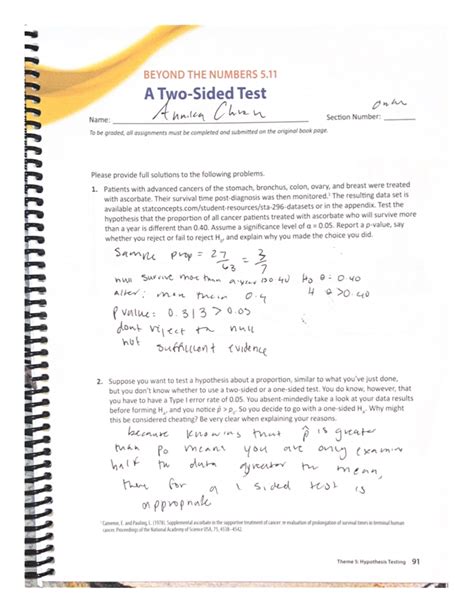 BEYOND THE NUMBERS 5.11
A Two-Sided Test
Name: Annika Section Number:
To be graded, all assignments must be completed and submitted on the original book page.
Please provide full solutions to the following problems.
1. Patients with advanced cancers of the stomach, bronchus, colon, ovary, and breast were treated
with ascorbate. Their survival time post-diagnosis was then monitored.¹ The resulting data set is
available at statconcepts.com/student-resources/sta-296-datasets or in the appendix. Test the
hypothesis that the proportion of all cancer patients treated with ascorbate who will survive more
than a year is different than 0.40. Assume a significance level of α = 0.05. Report a p-value, say
whether you reject or fail to reject H₀, and explain why you made the choice you did.
Sample prop = 27/63 = 3/7
null survive more than a year is 0.40 H₀ θ = 0.40
alter: more than 0.4 θ > 0.40
p value: 0.313 > 0.05
dont reject th null
not sufficent evidence
2. Suppose you want to test a hypothesis about a proportion, similar to what you've just done,
but you don't know whether to use a two-sided or a one-sided test. You do know, however, that
you have to have a Type I error rate of 0.05. You absent-mindedly take a look at your data results
before forming H₀, and you notice p̂ > p₀. So you decide to go with a one-sided H₀. Why might
this be considered cheating? Be very clear when explaining your reasons.
because knowing that p̂ is greater
than p₀ means you are only examin
half th data greater th mean,
there for a 1 sided test is
appropriate
¹Cameron, E. and Pauling, L. (1978). Supplemental ascorbate in the supportive treatment of cancer: re-evaluation of prolongation of survival times in terminal human
cancer. Proceedings of the National Academy of Science USA, 75, 4538-4542.
Theme 5: Hypothesis Testing 91